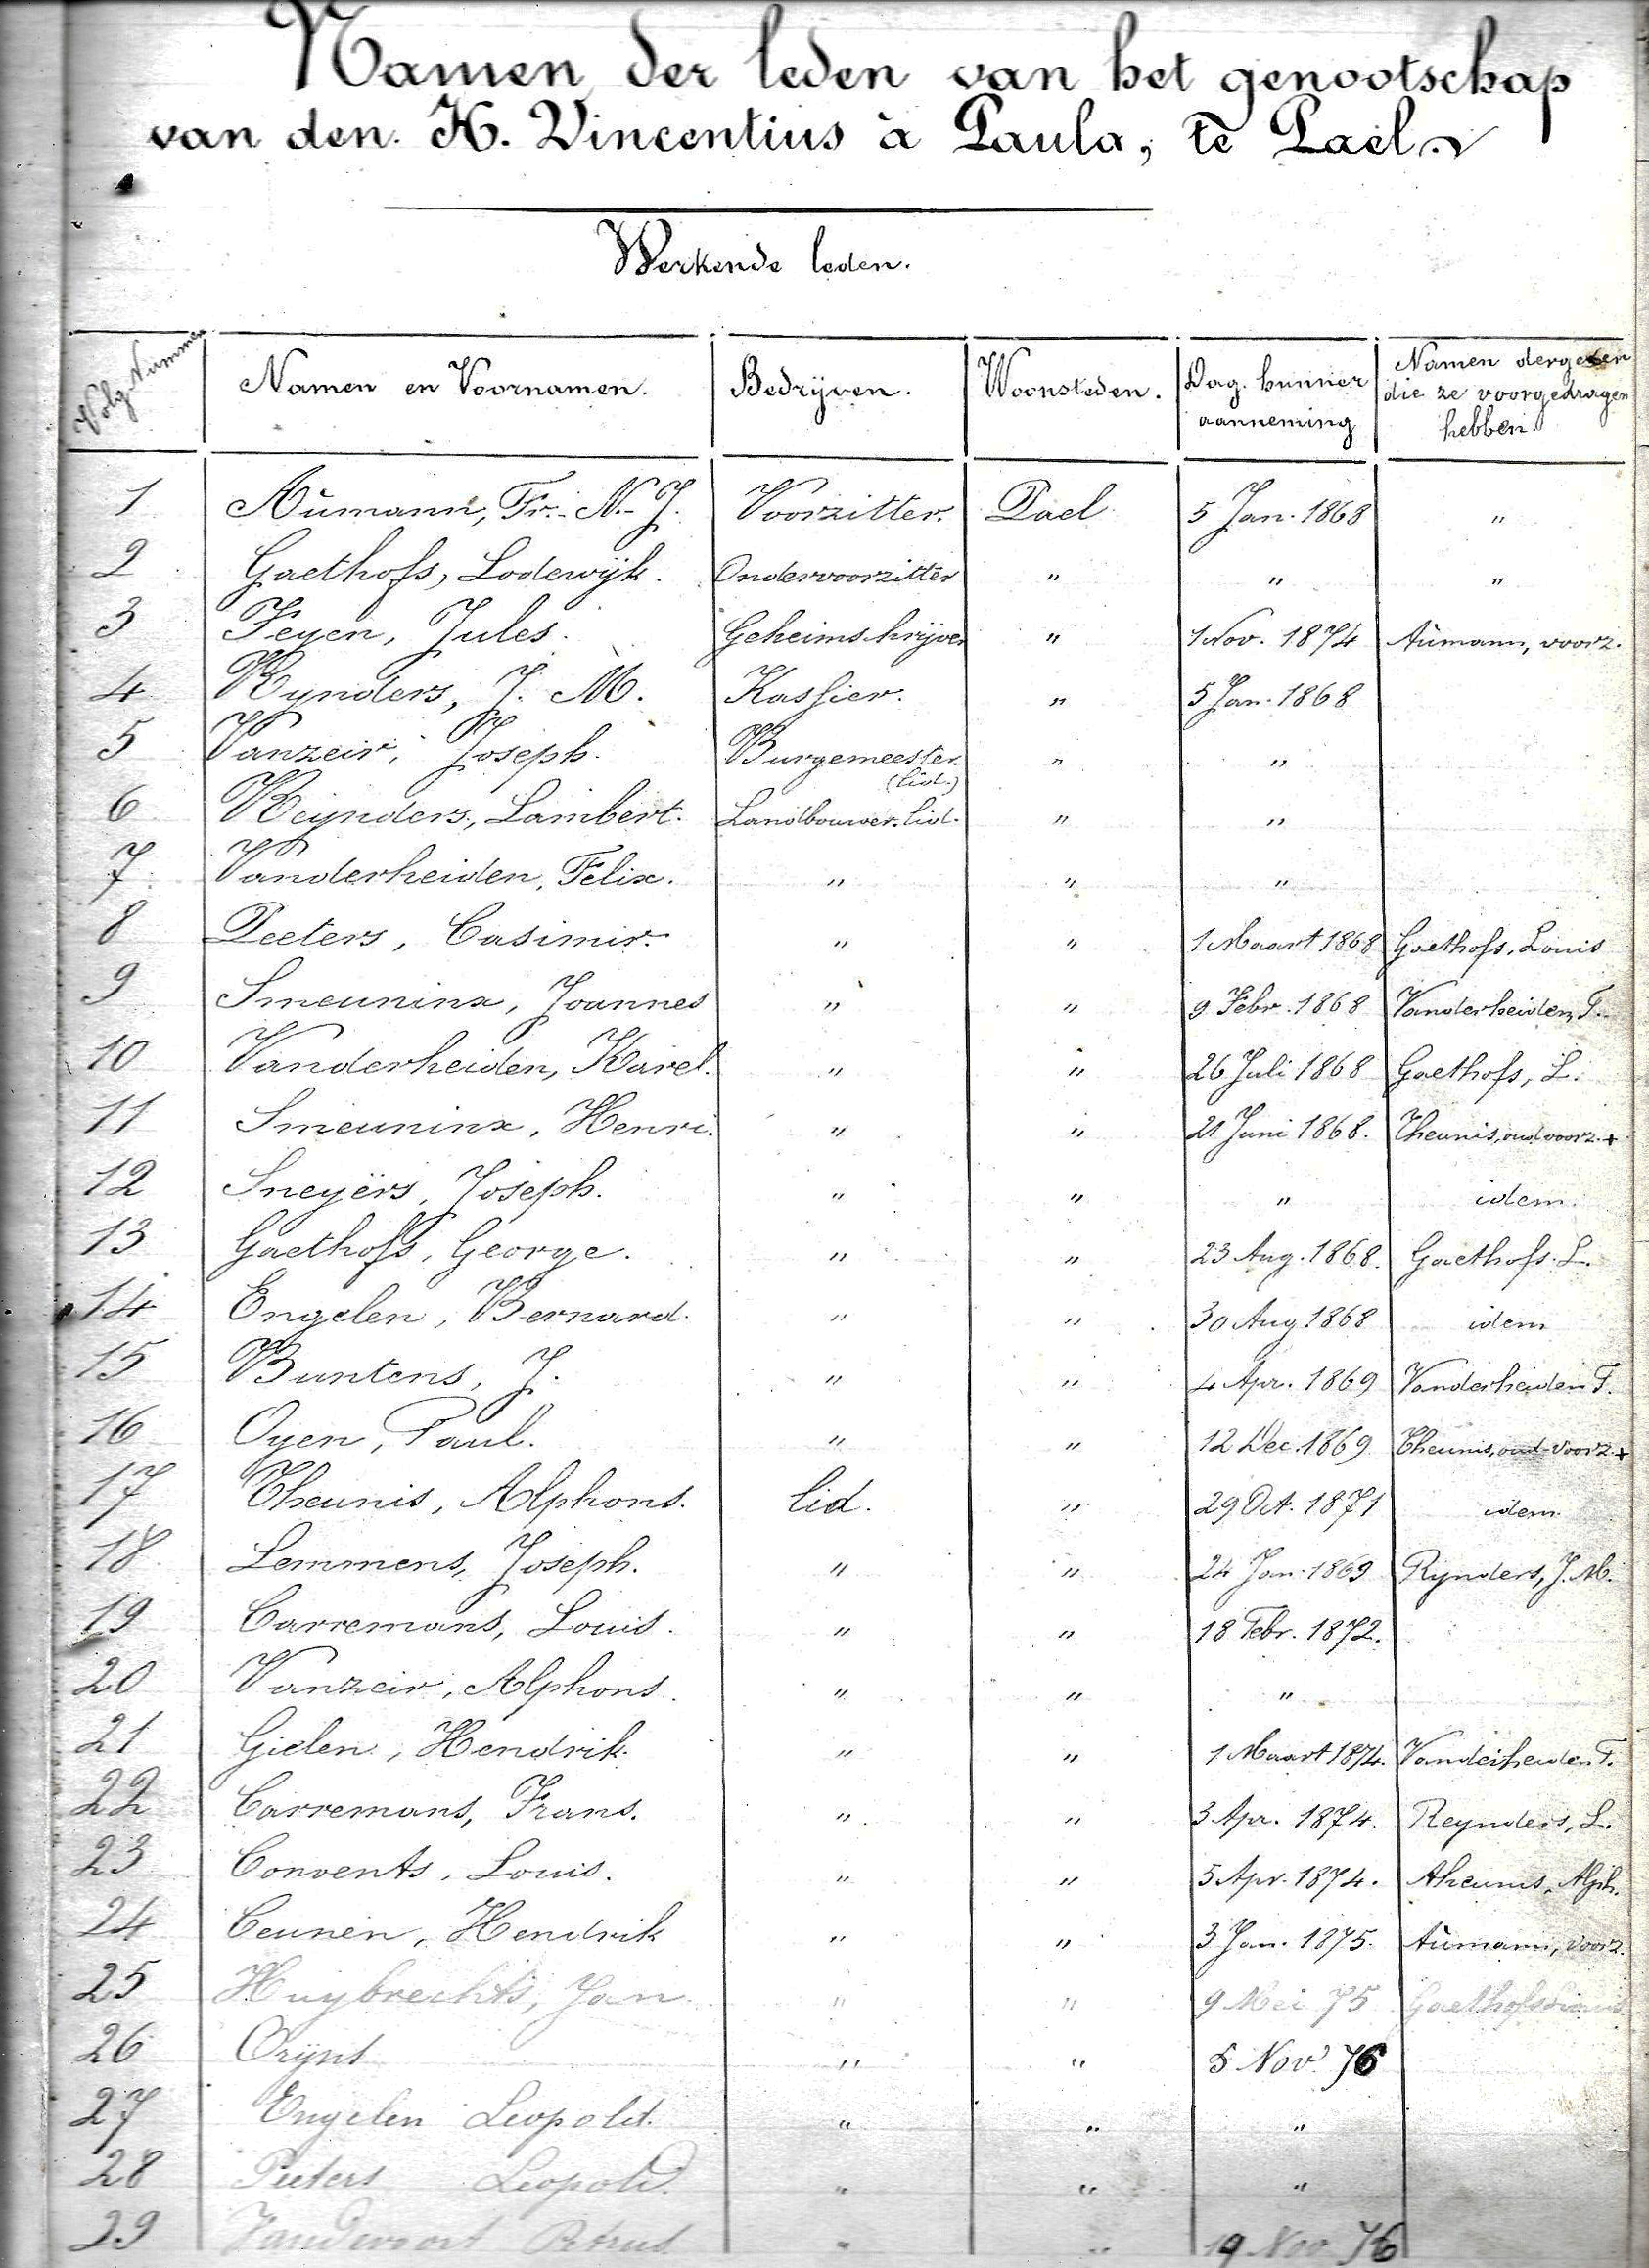 Namen der leden van het genootschap
van den H. Vincentius à Paula, te Pael.
Werkende leden.
Volg Nummer Namen en Voornamen. Bedrijven. Woonsteden. Dag hunner aanneming Namen dergenen die ze voorgedragen hebben.
1 Aŭmann, Fr.-N.-J. Voorzitter. Pael 5 Jan. 1868 "
2 Gaethofs, Lodewijk. Ondervoorzitter " " "
3 Feyen, Jules. Geheimschrijver " 1 Nov. 1874 Aŭmann, voorz.
4 Rynders, J. M. Kassier. " 5 Jan. 1868
5 Vanzeir, Joseph. Burgemeester. (lid.) " "
6 Reynders, Lambert. Landbouwer. lid. " "
7 Vanderheiden, Felix. " " "
8 Peeters, Casimir. " " 1 Maart 1868 Gaethofs, Louis
9 Smeuninx, Joannes " " 9 Febr. 1868 Vanderheiden, F.
10 Vanderheiden, Karel. " " 26 Juli 1868 Gaethofs, L.
11 Smeuninx, Henri. " " 21 Juni 1868. Theunis, oud voorz. +
12 Sneyërs, Joseph. " " " idem.
13 Gaethofs, George. " " 23 Aug. 1868. Gaethofs. L.
14 Engelen, Bernard. " " 30 Aug. 1868 idem
15 Buntens, J. " " 4 Apr. 1869 Vanderheiden F.
16 Oyen, Paul. " " 12 Dec. 1869 Theunis, oud-voorz. +
17 Theunis, Alphons. lid. " 29 Oct. 1871 idem.
18 Lemmens, Joseph. " " 24 Jan. 1869 Rynders, J. M.
19 Carremans, Louis. " " 18 Febr. 1872.
20 Vanzeir, Alphons. " " "
21 Gielen, Hendrik. " " 1 Maart 1874. Vanderheiden F.
22 Carremans, Frans. " " 3 Apr. 1874. Reynders, L.
23 Convents, Louis. " " 5 Apr. 1874. Theunis, Alph.
24 Ceunen, Hendrik " " 3 Jan. 1875. Aŭmann, voorz.
25 Huybrechts, Jan. " " 9 Mei 75 Gaethofs Louis
26 " " 5 Nov. 76
27 Engelen Leopold. " " "
28 Peeters Leopold. " " "
29 Vandevoort Petrus " " 19 Nov 76